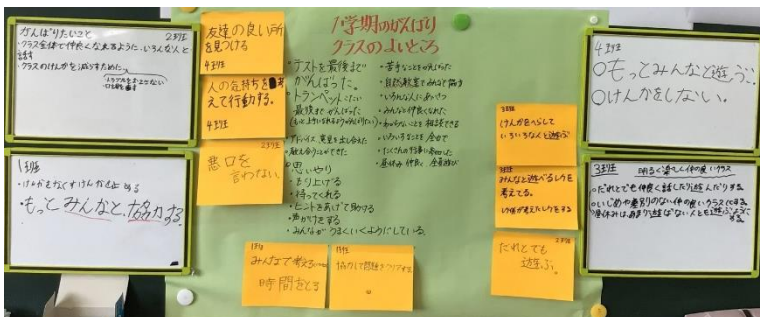 がんばりたいこと 2班
・クラス全体で仲良くなれるように、いろんな人と
話す
・クラスのけんかを減らすために、
トラブルをおこさない
1班
・けんかをなくす
・もっとみんなと、協力する。
友達の良い所
を見つける
4班
人の気持ちを考
えて行動する。
4班
2班
悪口を
言わない
1学期のがんばり
クラスのよいところ
・テストを最後まで
がんばった。
・トランペット
最後までがんばった
・アドバイス、意見を出し合えた
・教え合うことができた
・思いやり
・もり上げる
・待ってくれる
・ヒントをあげて助ける
・声かけをする
・みんながうまくいくようにしている。
・苦手なことをがんばった
・自然教室でみんなで協力
・いろんな人にあいさつ
・みんなと仲良くなれた
・わからないことを相談できる
・いろいろなことを全力で
・たくさんの行事に参加した
・昼休み 仲良く 全員遊び
1班
みんなで考える
時間をとる
1班
協力して問題をクリアする
3班
けんかをへらして
いろいろな人と遊ぶ
3班
みんなと遊べるレクを
考えてる。
2班
だれとでも
遊ぶ。
4班
○もっとみんなと遊ぶ。
○けんかをしない。
3班 明るく楽しく仲の良いクラス
○だれとでも仲良く話したり遊んだりする
○いじめや差別のない仲の良いクラスにする
○昼休みは、あまり遊ばない人とも遊ぶようにする